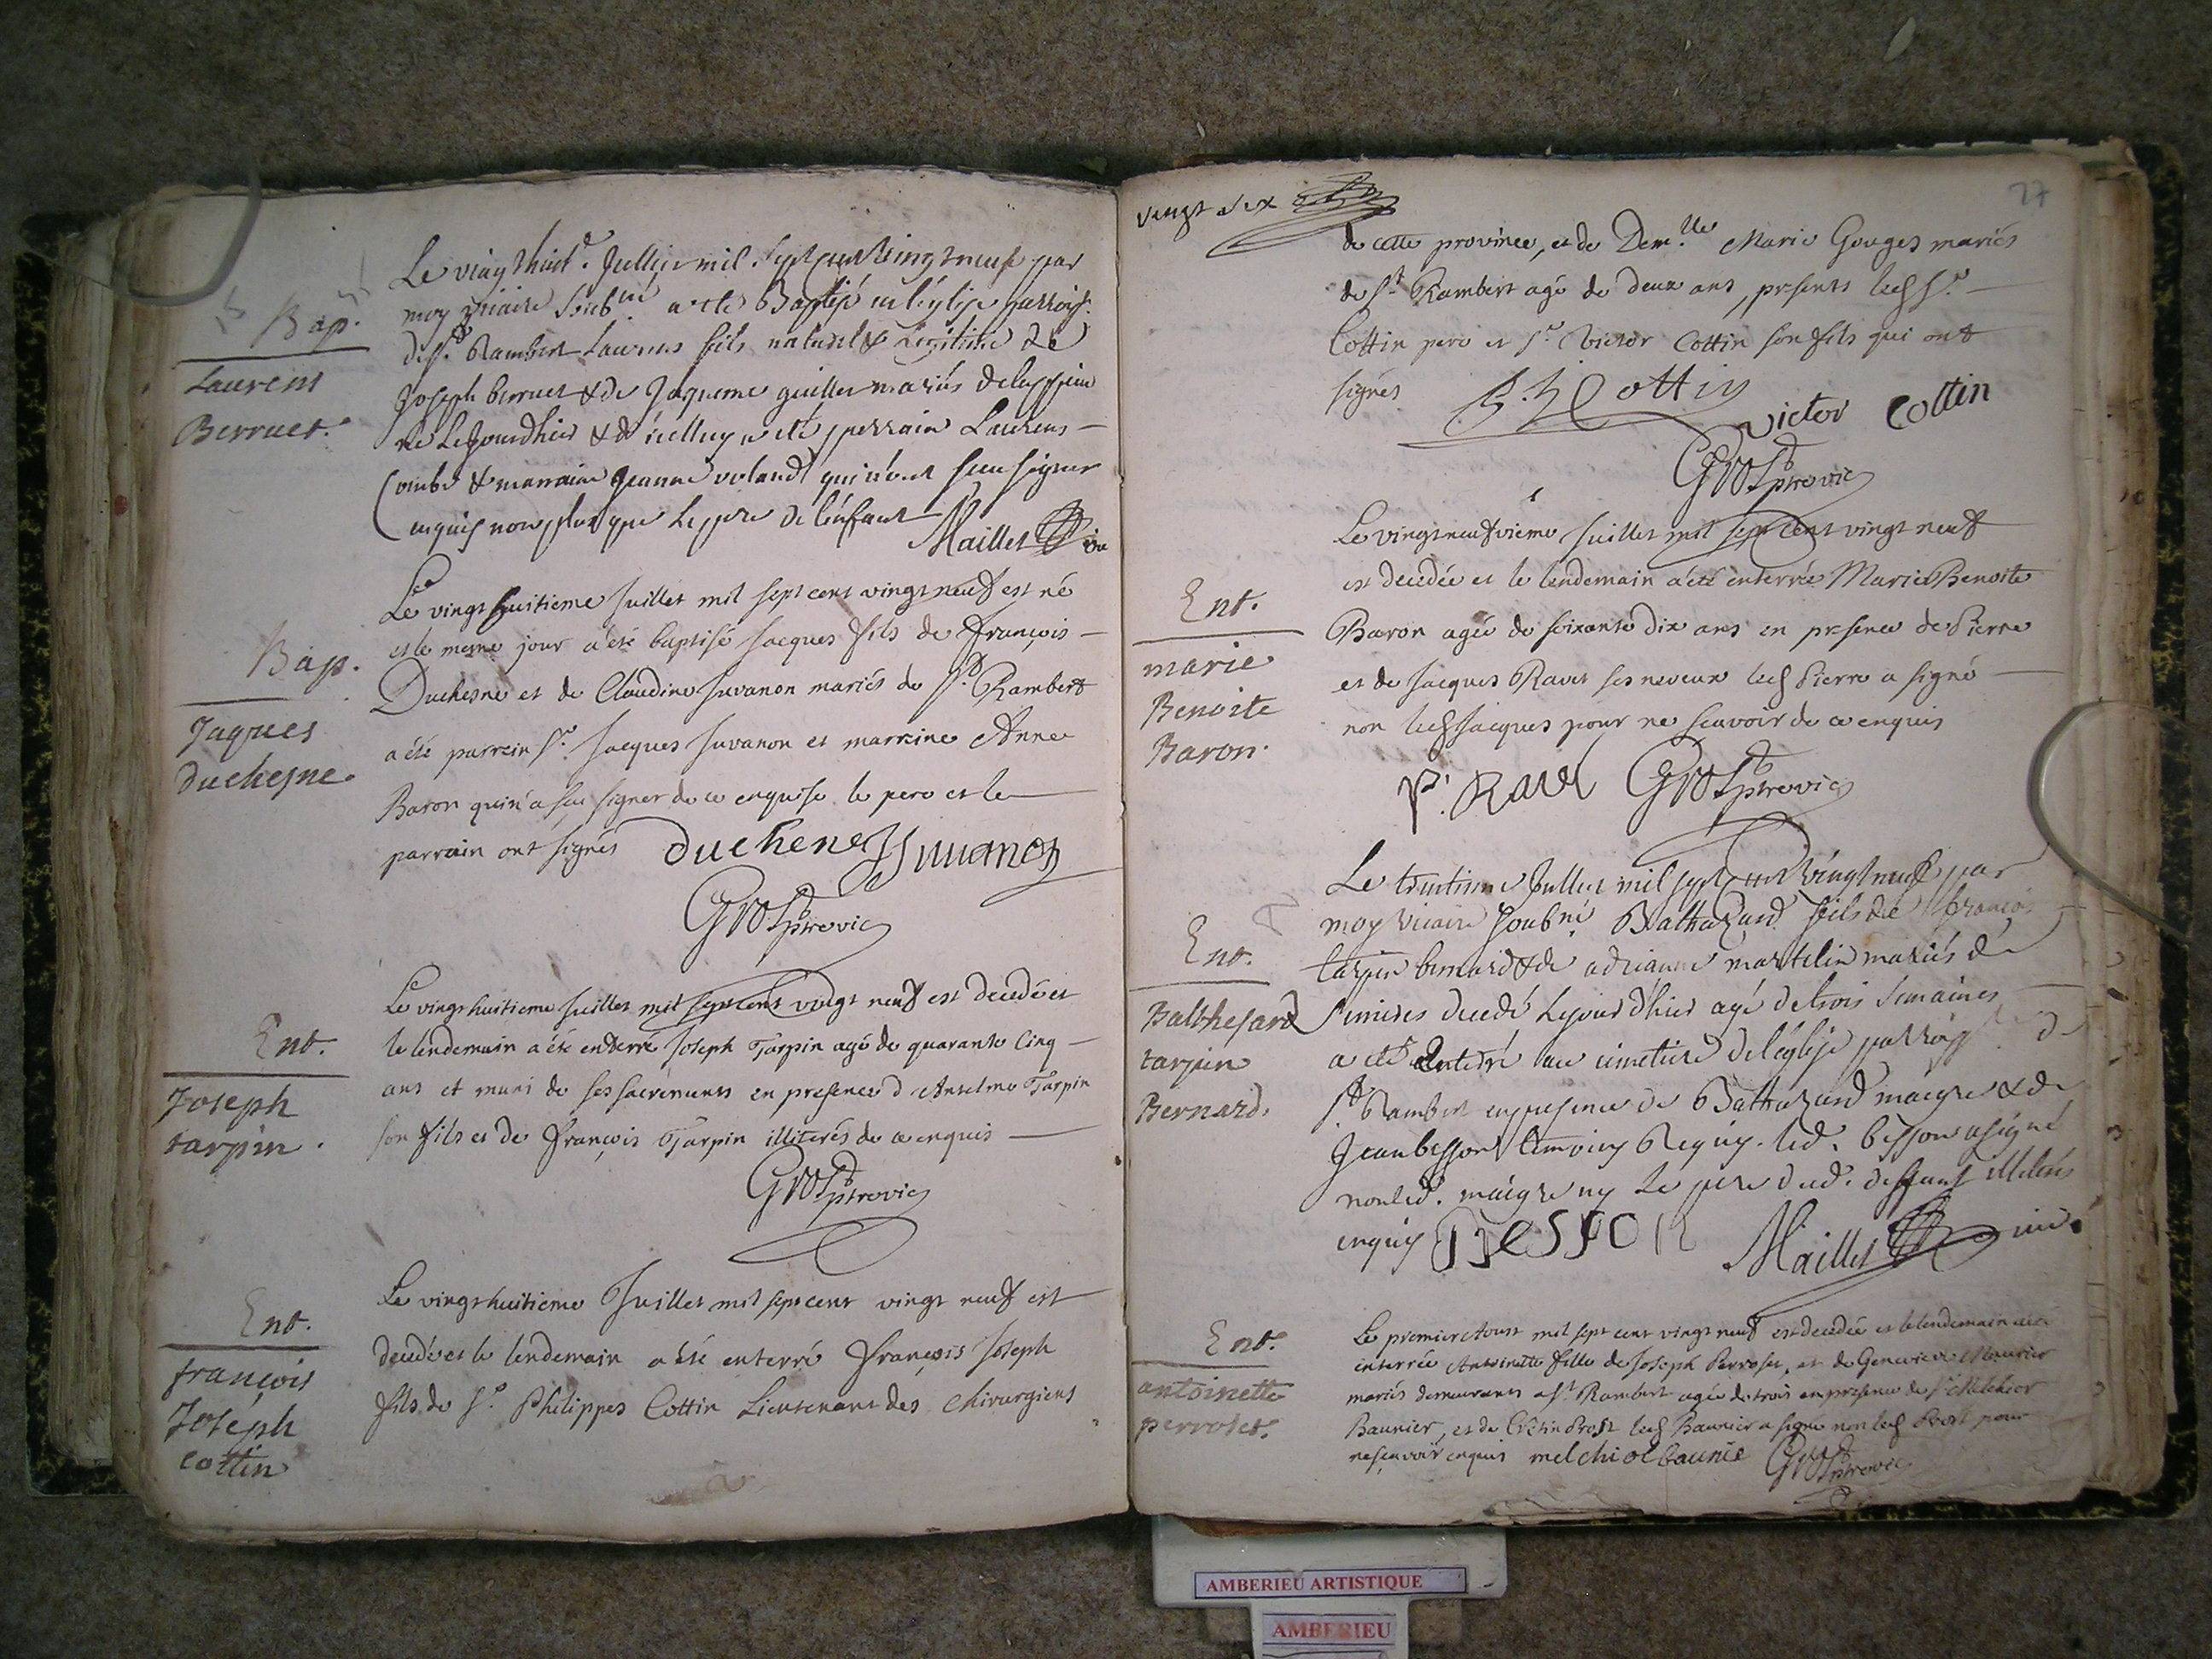 Bap.
Laurens
Berruet.
Le vingt huit.e Juillet mil sept cent vingt neuf par
moy vicaire soub.né a eté Baptisé en l'église parroiss.
de St. Rambert Laurens fils naturel & Légitime de
Joseph berruet & de Jaqueme guillet mariés
né Lejourdhier & de icelluy a eté perrain Laurens
Combe & marraine Jeanne voland qui n'ont sceu signer
enquis non plus que le pere de l'enfant
Maillet vic
Bap.
Jaques
duchesne.
Le vingt huitieme Juillet mil sept cent vingt neuf est né
et le meme jour a été baptisé Jacques fils de François
Duchesne et de Claudine Juvanon mariés de St. Rambert
a été parrein Sr. Jacques Juvanon et marreine Anne
Baron qui n'a sçu signer de ce enquise le pere et le
parrain ont signés duchene J Juuanon
Gros ptre vic
Ent.
Joseph
tarpin.
Le vingt huitieme Juillet mil sept cent vingt neuf est decedé et
le lendemain a été enterré Joseph Tarpin agé de quarante Cinq
ans et muni de ses sacremens en presence d'Anselme Tarpin
son fils et de François Tarpin illiterés de ce enquis
Gros ptre vic
Ent.
françois
Joseph
cottin
Le vingt huitieme Juillet mil sept cent vingt neuf est
decedé et le lendemain a été enterré François Joseph
fils de Sr. Philippes Cottin Lieutenant des Chirurgiens
vingt six
27
de cette province, et de Dem.lle Marie Gouges mariés
de St. Rambert agé de deux ans, presents led. Sr.
Cottin pere et Sr. Victor Cottin son fils qui ont
signés Cottin
victor cottin
Gros ptre vic
Ent.
marie
Benoite
Baron.
Le vingt neufvieme Juillet mil sept cent vingt neuf
est decedée et le lendemain a été enterrée Marie Benoite
Baron agée de soixante dix ans en presence de Pierre
et de Jacques Ravet ses neveux led. Pierre a signé
non led. Jacques pour ne sçavoir de ce enquis
P. Ravet Gros ptre vic
Ent.
Balthesard
tarpin
Bernard.
Le trentieme Juillet mil sept cent vingt neuf par
moy vicaire soub.né Balthazard fils de françois
tarpin bernard & de adrianne martelin mariés de
Serrieres decedé Lejourd'hier agé de trois semaines
a eté Enterré au cimetiere de l'église parroiss de
St. Rambert en presence de Balthazard maigre & de
Jean besson temoins Requis. led. besson a signé
non led. maigre ny Le pere dud. deffunt illiterés
enquis Besson Maillet vic.
Ent.
antoinette
perroset.
Le premier Aoust mil sept cent vingt neuf est decedée et le lendemain a été
enterrée Antoinette fille de Joseph Perroset, et de Genevieve Meunier
mariés demeurants a St. Rambert agée de trois en presence de Sr. Melchior
Baunier, et de Crétin Prost led. Baunier a signé non led. Prost pour
ne sçavoir enquis melchiol baunie Gros ptre vic
AMBERIEU ARTISTIQUE
AMBERIEU